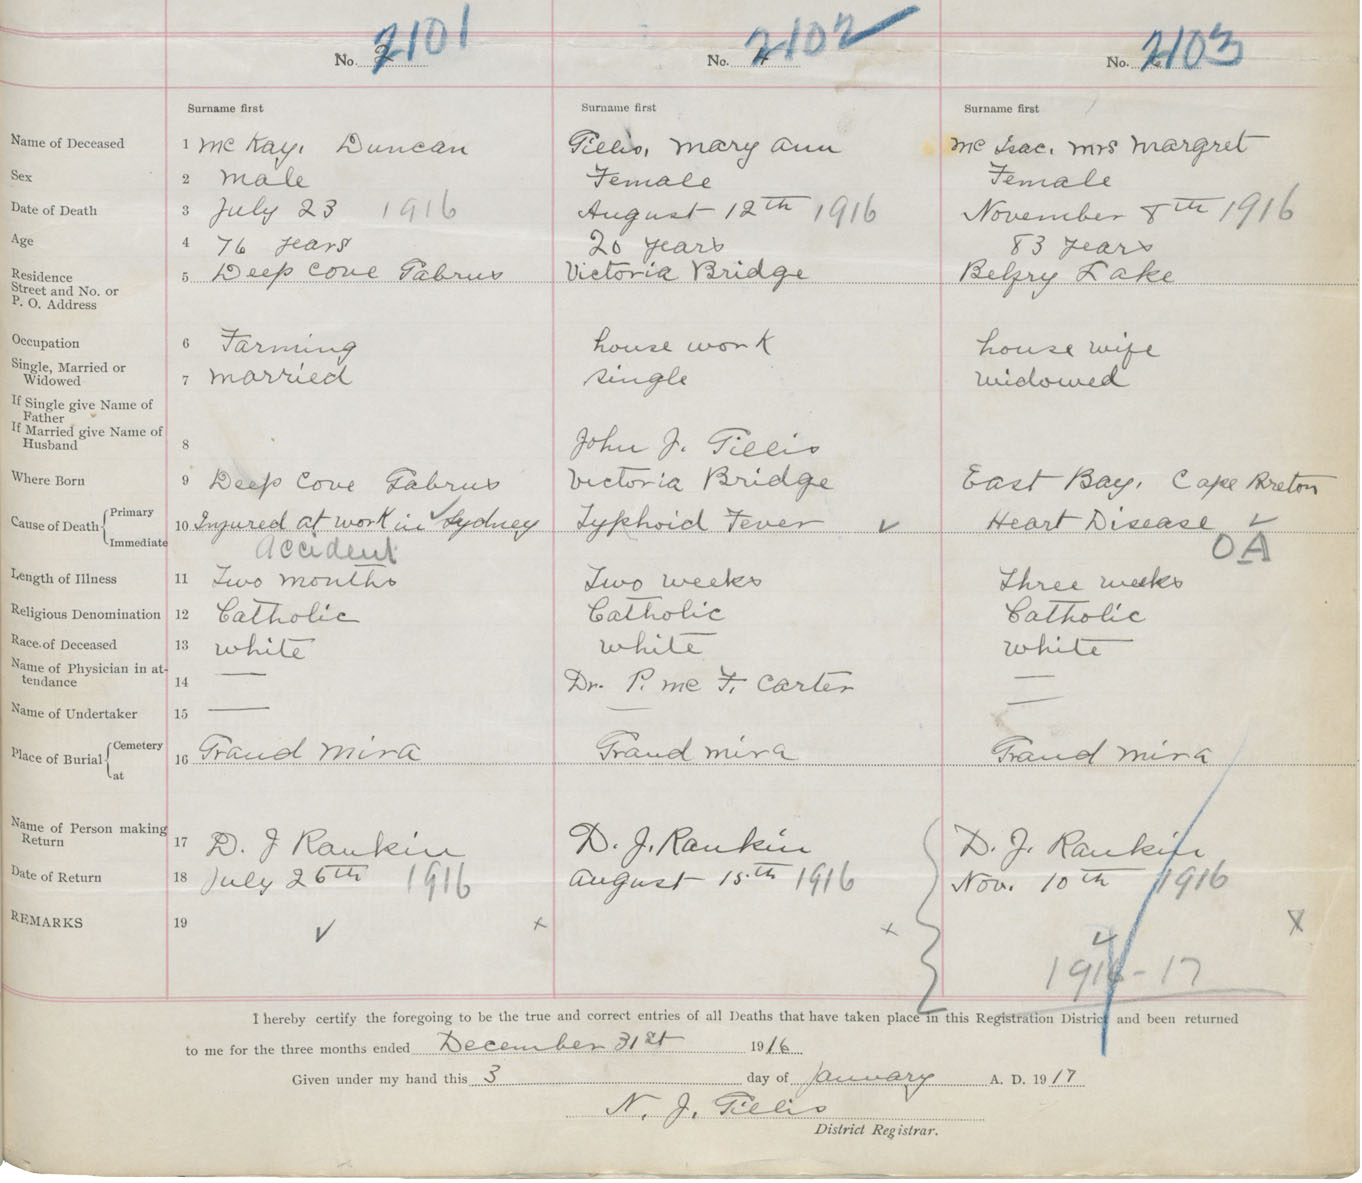 2101 2102 2103
No. No. 4 No.
Surname first Surname first Surname first
Name of Deceased 1 Mc Kay, Duncan Gillis, Mary Ann Mc Isac. Mrs Margret
Sex 2 Male Female Female
Date of Death 3 July 23 1916 August 12th 1916 November 8th 1916
Age 4 76 years 20 years 83 years
Residence
Street and No. or
P. O. Address 5 Deep Cove Gabrus Victoria Bridge Belfry Lake
Occupation 6 Farming house work house wife
Single, Married or
Widowed 7 married single widowed
If Single give Name of
Father
If Married give Name of
Husband 8 John J. Gillis
Where Born 9 Deep Cove Gabrus Victoria Bridge East Bay, Cape Breton
Cause of Death { Primary
Immediate 10 Injured at work in Sydney Typhoid Fever Heart Disease
accident OA
Length of Illness 11 Two months Two weeks Three weeks
Religious Denomination 12 Catholic Catholic Catholic
Race of Deceased 13 white white white
Name of Physician in at-
tendance 14 — Dr. P. Mc F. Carter —
Name of Undertaker 15 — — —
Place of Burial { Cemetery
at 16 Grand Mira Grand Mira Grand Mira
Name of Person making
Return 17 D. J Rankin D. J. Rankin D. J. Rankin
Date of Return 18 July 26th 1916 August 15th 1916 Nov. 10th 1916
REMARKS 19 ✓ x x X
1916-17
I hereby certify the foregoing to be the true and correct entries of all Deaths that have taken place in this Registration District and been returned
to me for the three months ended December 31st 1916
Given under my hand this 3 day of January A. D. 1917
N. J. Gillis
District Registrar.